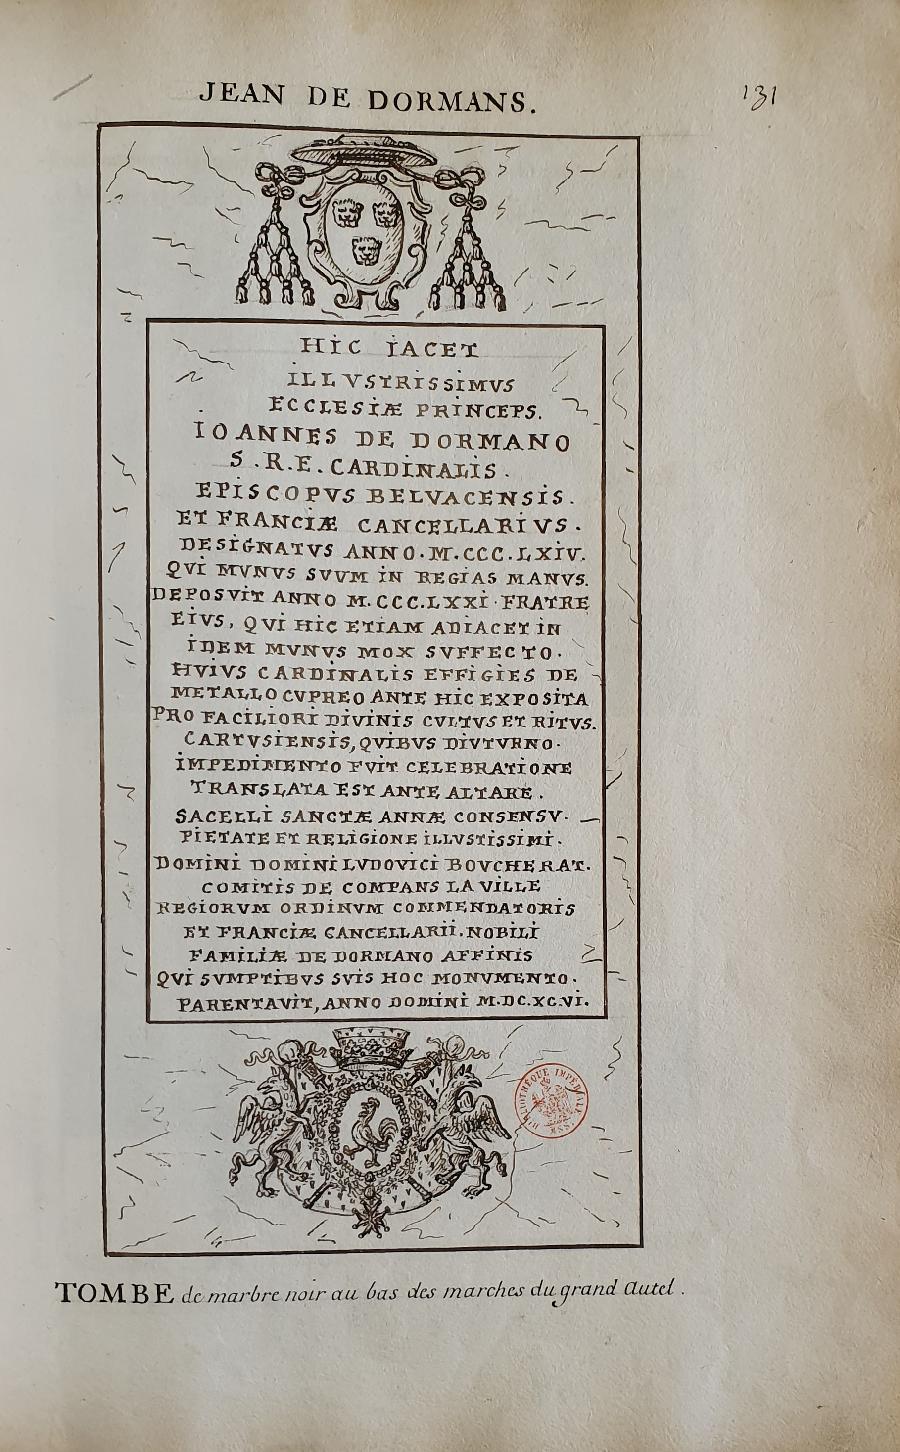 JEAN DE DORMANS.
131
HIC IACET
ILLVSTRISSIMVS
ECCLESIÆ PRINCEPS.
IOANNES DE DORMANO
S.R.E. CARDINALIS.
EPISCOPVS BELVACENSIS.
ET FRANCIÆ CANCELLARIVS.
DESIGNATVS ANNO.M.CCC.LXIV.
QVI MVNVS SVVM IN REGIAS MANVS.
DEPOSVIT ANNO M.CCC.LXXI.FRATRE
EIVS, QVI HIC ETIAM ADIACET IN
IDEM MVNVS MOX SVFFECTO.
HVIVS CARDINALIS EFFIGIES DE
METALLO CVPREO ANTE HIC EXPOSITA
PRO FACILIORI DIVINIS CVLTVS ET RITVS.
CARTVSIENSIS, QVIBVS DIVTVRNO.
IMPEDIMENTO FVIT CELEBRATIONE
TRANSLATA EST ANTE ALTARE.
SACELLI SANCTÆ ANNÆ CONSENSV.
PIETATE ET RELIGIONE ILLVSTISSIMI.
DOMINI DOMINI LVDOVICI BOVCHERAT.
COMITIS DE COMPANS LA VILLE
REGIORVM ORDINVM COMMENDATORIS
ET FRANCIÆ CANCELLARII. NOBILI
FAMILIÆ DE DORMANO AFFINIS
QVI SVMPTIBVS SVIS HOC MONVMENTO.
PARENTAVIT, ANNO DOMINI M.DC.XC.VI.
BIBLIOTHÈQUE IMPÉRIALE MSS.
TOMBE de marbre noir au bas des marches du grand Autel.